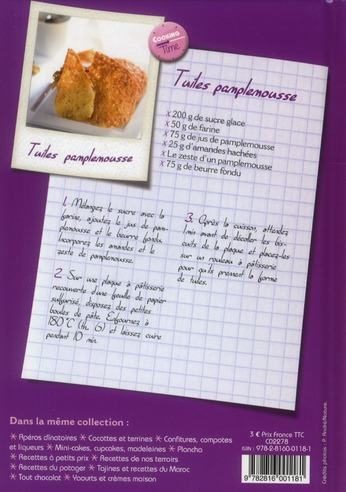 COOKING
Time
Tuiles pamplemousse
Tuiles pamplemousse
x 200 g de sucre glace
x 50 g de farine
x 75 g de jus de pamplemousse
x 25 g d'amandes hachées
x Le zeste d'un pamplemousse
x 75 g de beurre fondu
1. Mélangez le sucre avec la
farine, ajoutez le jus de pam-
plemousse et le beurre fondu.
Incorporez les amandes et le
zeste de pamplemousse.
2. Sur une plaque à pâtisserie
recouverte d'une feuille de papier
sulfurisé, disposez des petites
boules de pâte. Enfournez à
180°C (th. 6) et laissez cuire
pendant 10 min.
3. Après la cuisson, attendez
1 min avant de décoller les bis-
cuits de la plaque et placez-les
sur un rouleau à pâtisserie
pour qu'ils prennent la forme
de tuiles.
Dans la même collection :
* Apéros dînatoires * Cocottes et terrines * Confitures, compotes
et liqueurs * Mini-cakes, cupcakes, madeleines * Plancha
* Recettes à petits prix * Recettes de nos terroirs
* Recettes du potager * Tajines et recettes du Maroc
* Tout chocolat * Yaourts et crèmes maison
3 € Prix France TTC
CO2278
ISBN : 978-2-8160-0118-1
9 782816 001181
Crédits photos : P. André/Nature.